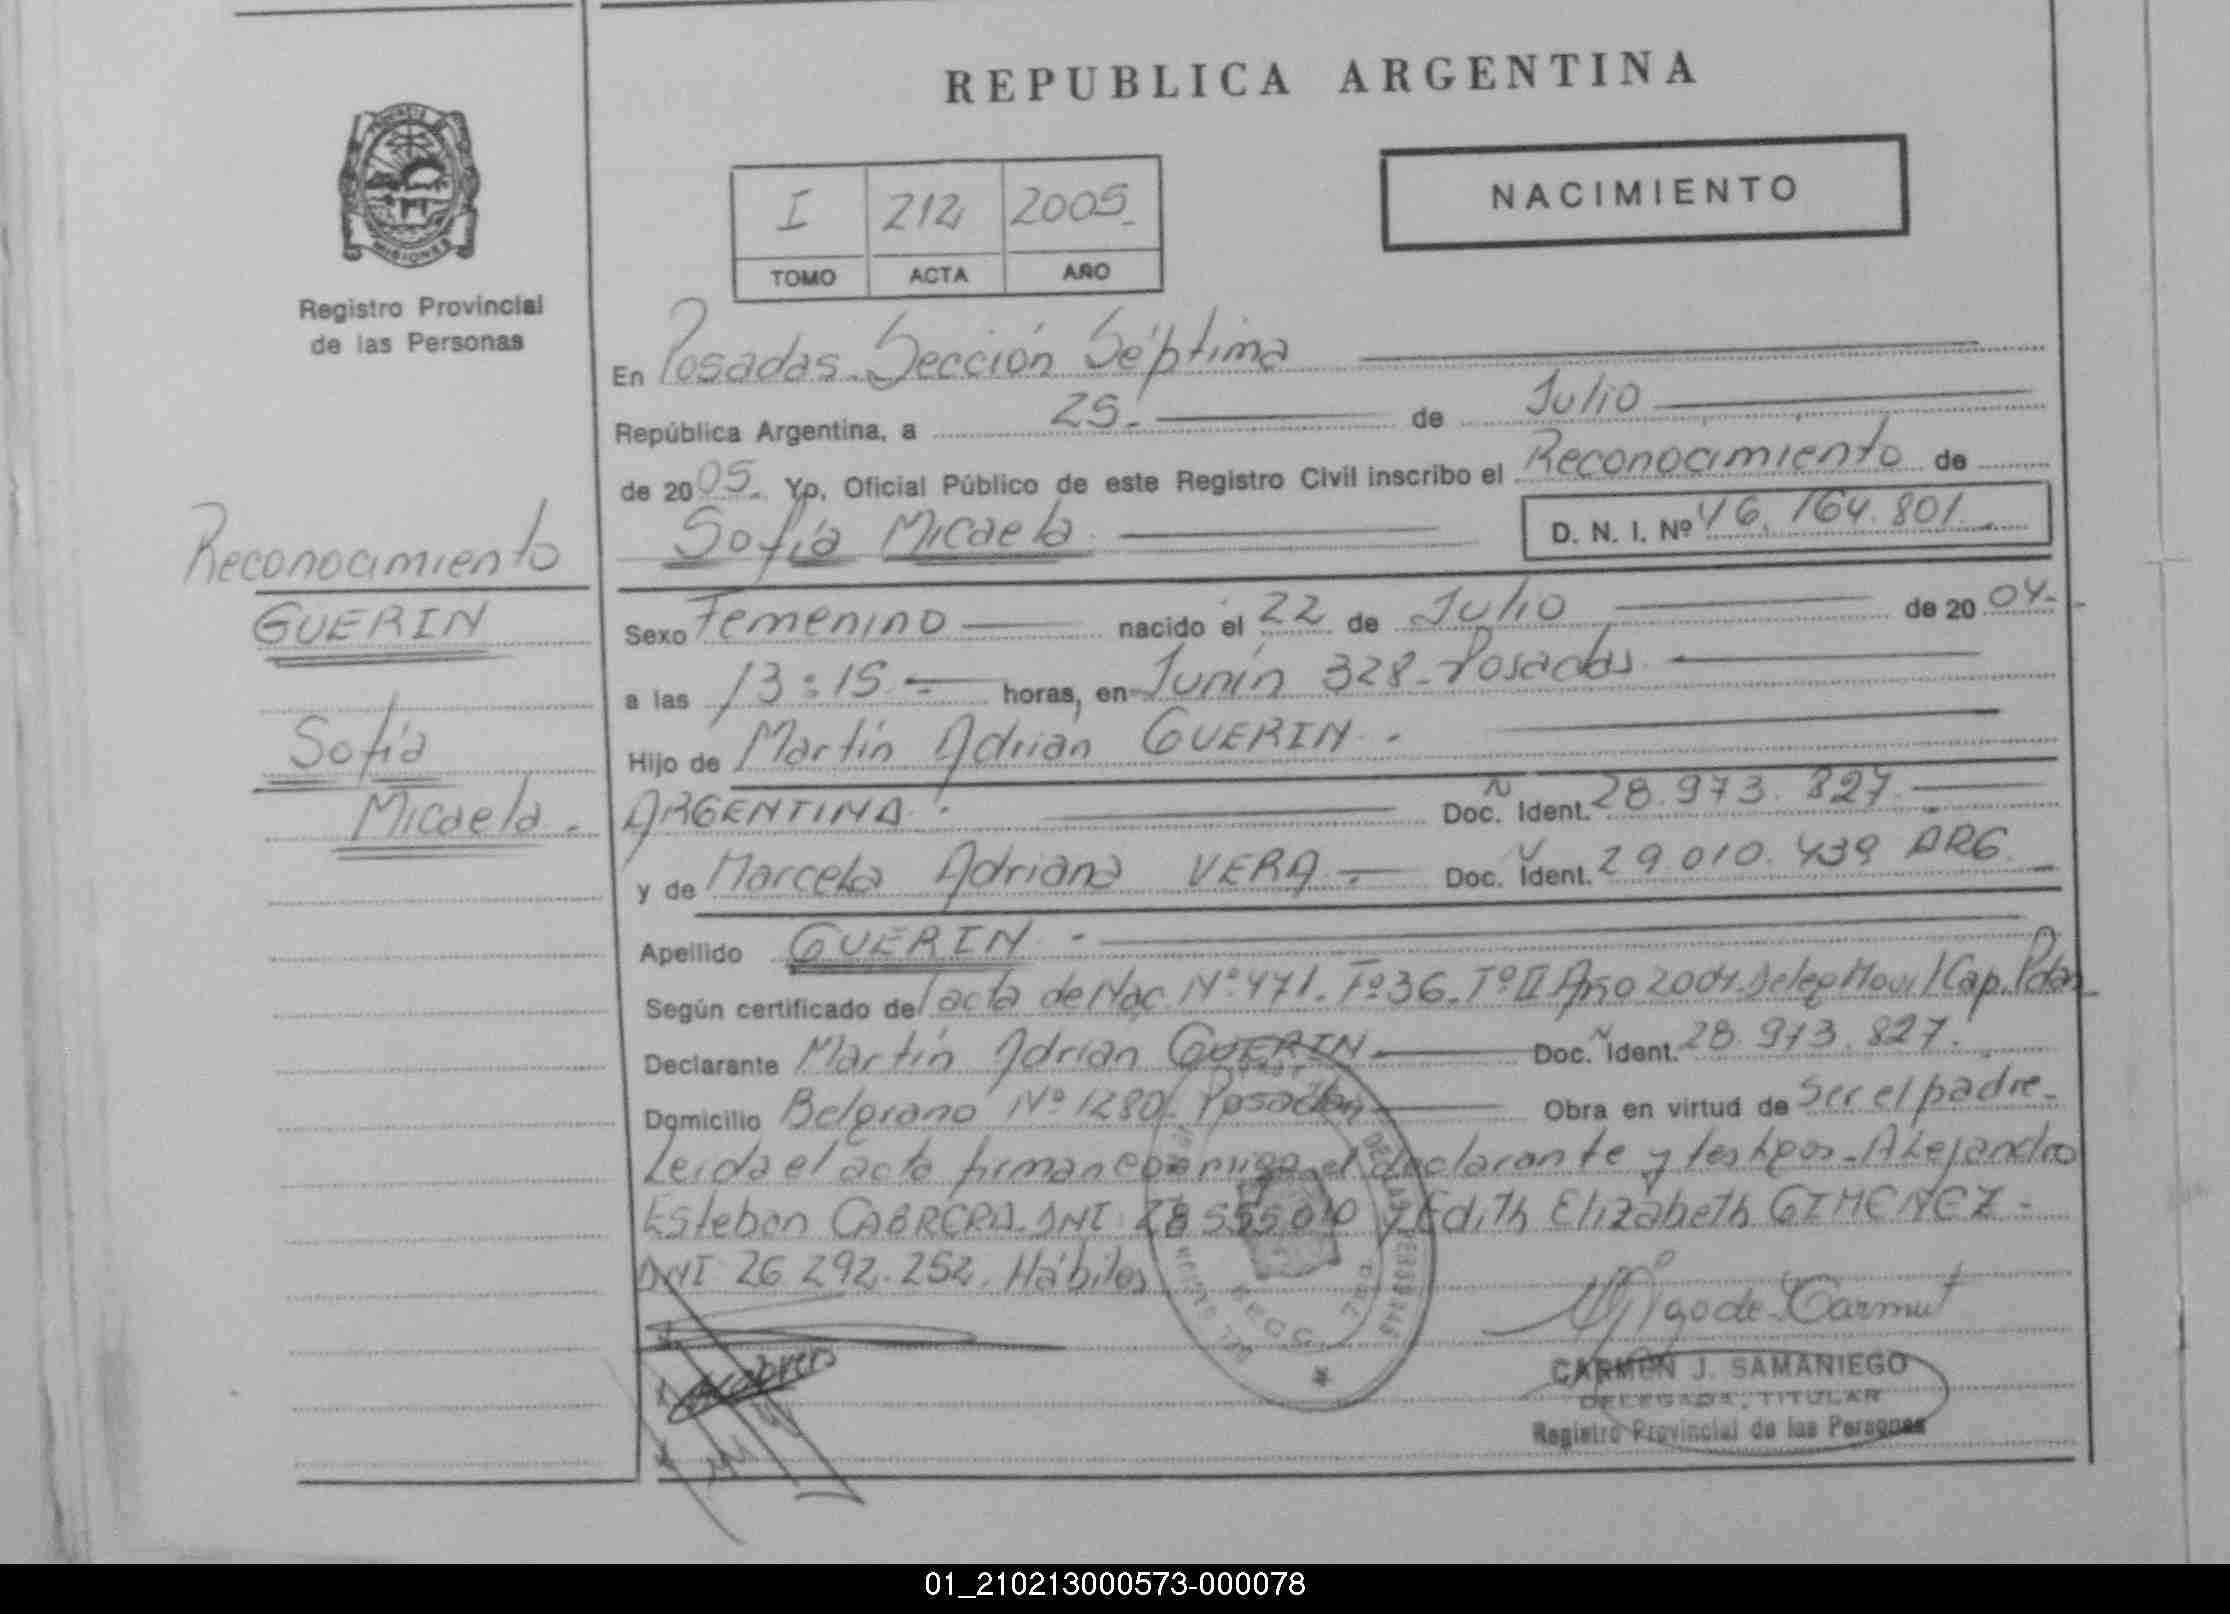 REPUBLICA ARGENTINA
NACIMIENTO
PROVINCIA DE
MISIONES
Registro Provincial
de las Personas
I 212 2005.
TOMO ACTA AÑO
En Posadas. Sección Séptima
República Argentina, a 25. de Julio
de 2005. Yo, Oficial Público de este Registro Civil inscribo el Reconocimiento de
Sofía Micaela D. N. I. Nº 46.164.801.
Reconocimiento
GUERIN
Sofía
Micaela.
Sexo Femenino nacido el 22 de Julio de 2004.
a las 13:15 horas, en Junín 328 - Posadas
Hijo de Martín Adrian GUERIN.
ARGENTINA. Doc. Ident. 28.973.827.
y de Marcela Adriana VERA Doc. Ident. 29.010.439 ARG.
Apellido GUERIN.
Según certificado de acta de Nac. Nº 471. Fº 36. Tº II Año 2004. Deleg Movil Cap. Pdas
Declarante Martín Adrian GUERIN Doc. Ident. 28.973.827.
Domicilio Belgrano Nº 1280. Posadas Obra en virtud de Ser el padre.
Leída el acta firman conmigo el declarante y testigos. Alejandro
Esteban CABRERA. DNI 28 555 010 y Edith Elizabeth GIMENEZ -
DNI 26.292.252. Hábiles
CARMEN J. SAMANIEGO
DELEGADA TITULAR
Registro Provincial de las Personas
01_210213000573-000078